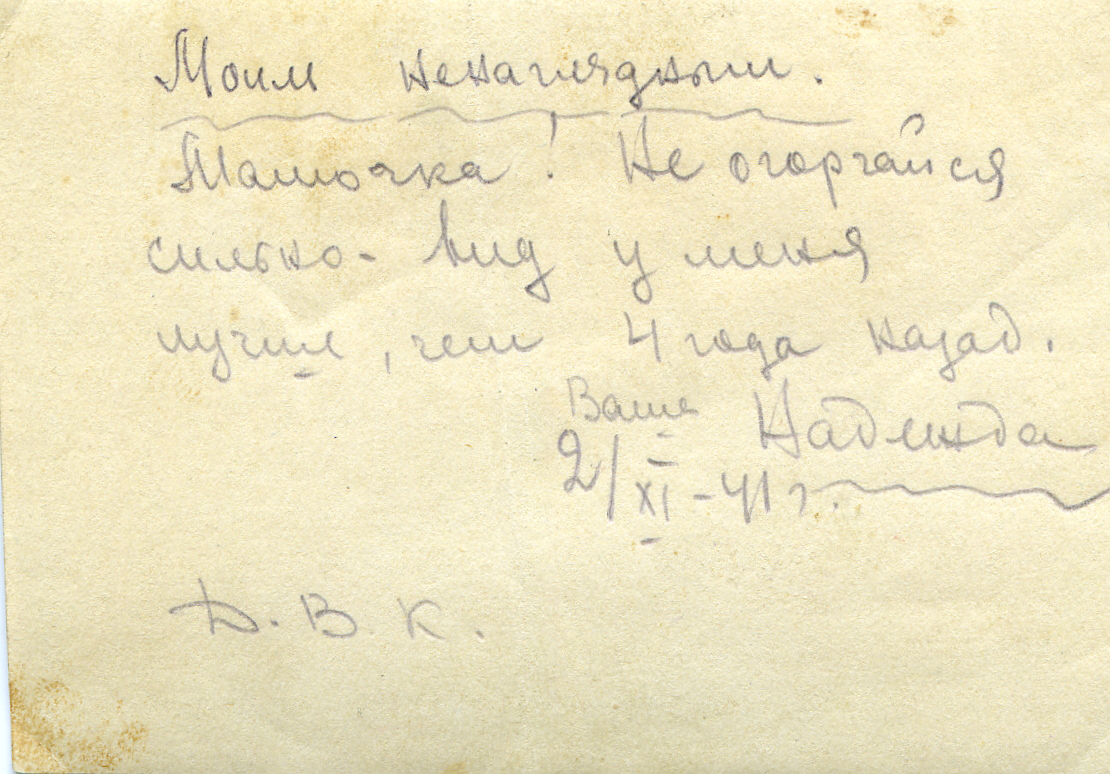 Моим ненаглядным.
Мамочка! Не огорчайся
сильно - вид у меня
лучше, чем 4 года назад.
Ваша Надежда
2/XI-41 г.
Д.В.К.